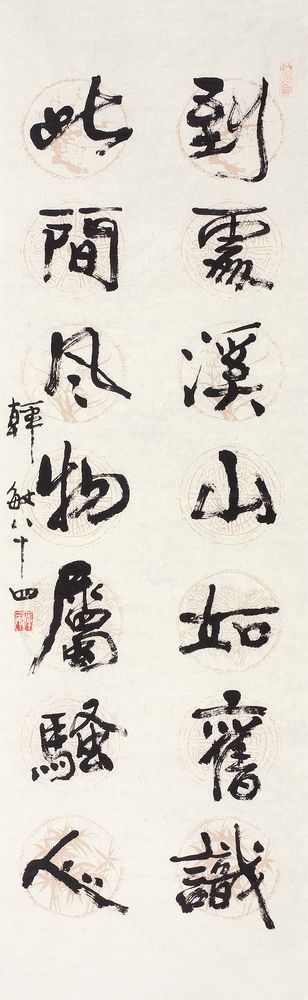 到處溪山如舊識
此間风物屬騷人
韓敏八十四